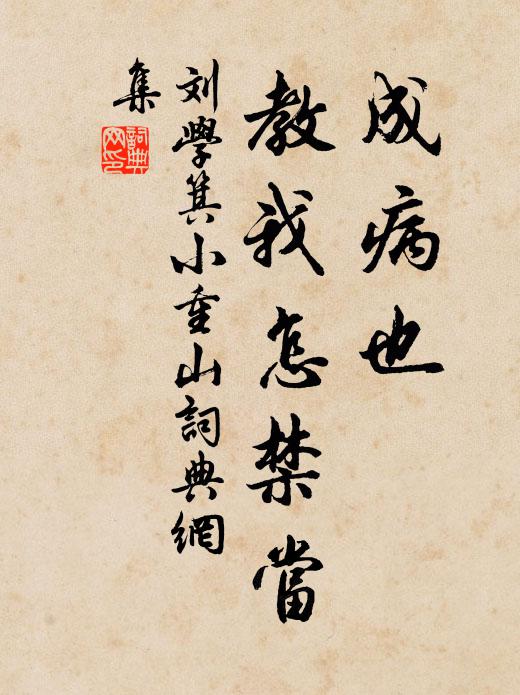 成病也
教我怎禁當
刘學箕小重山詞典網
集
詞典網印